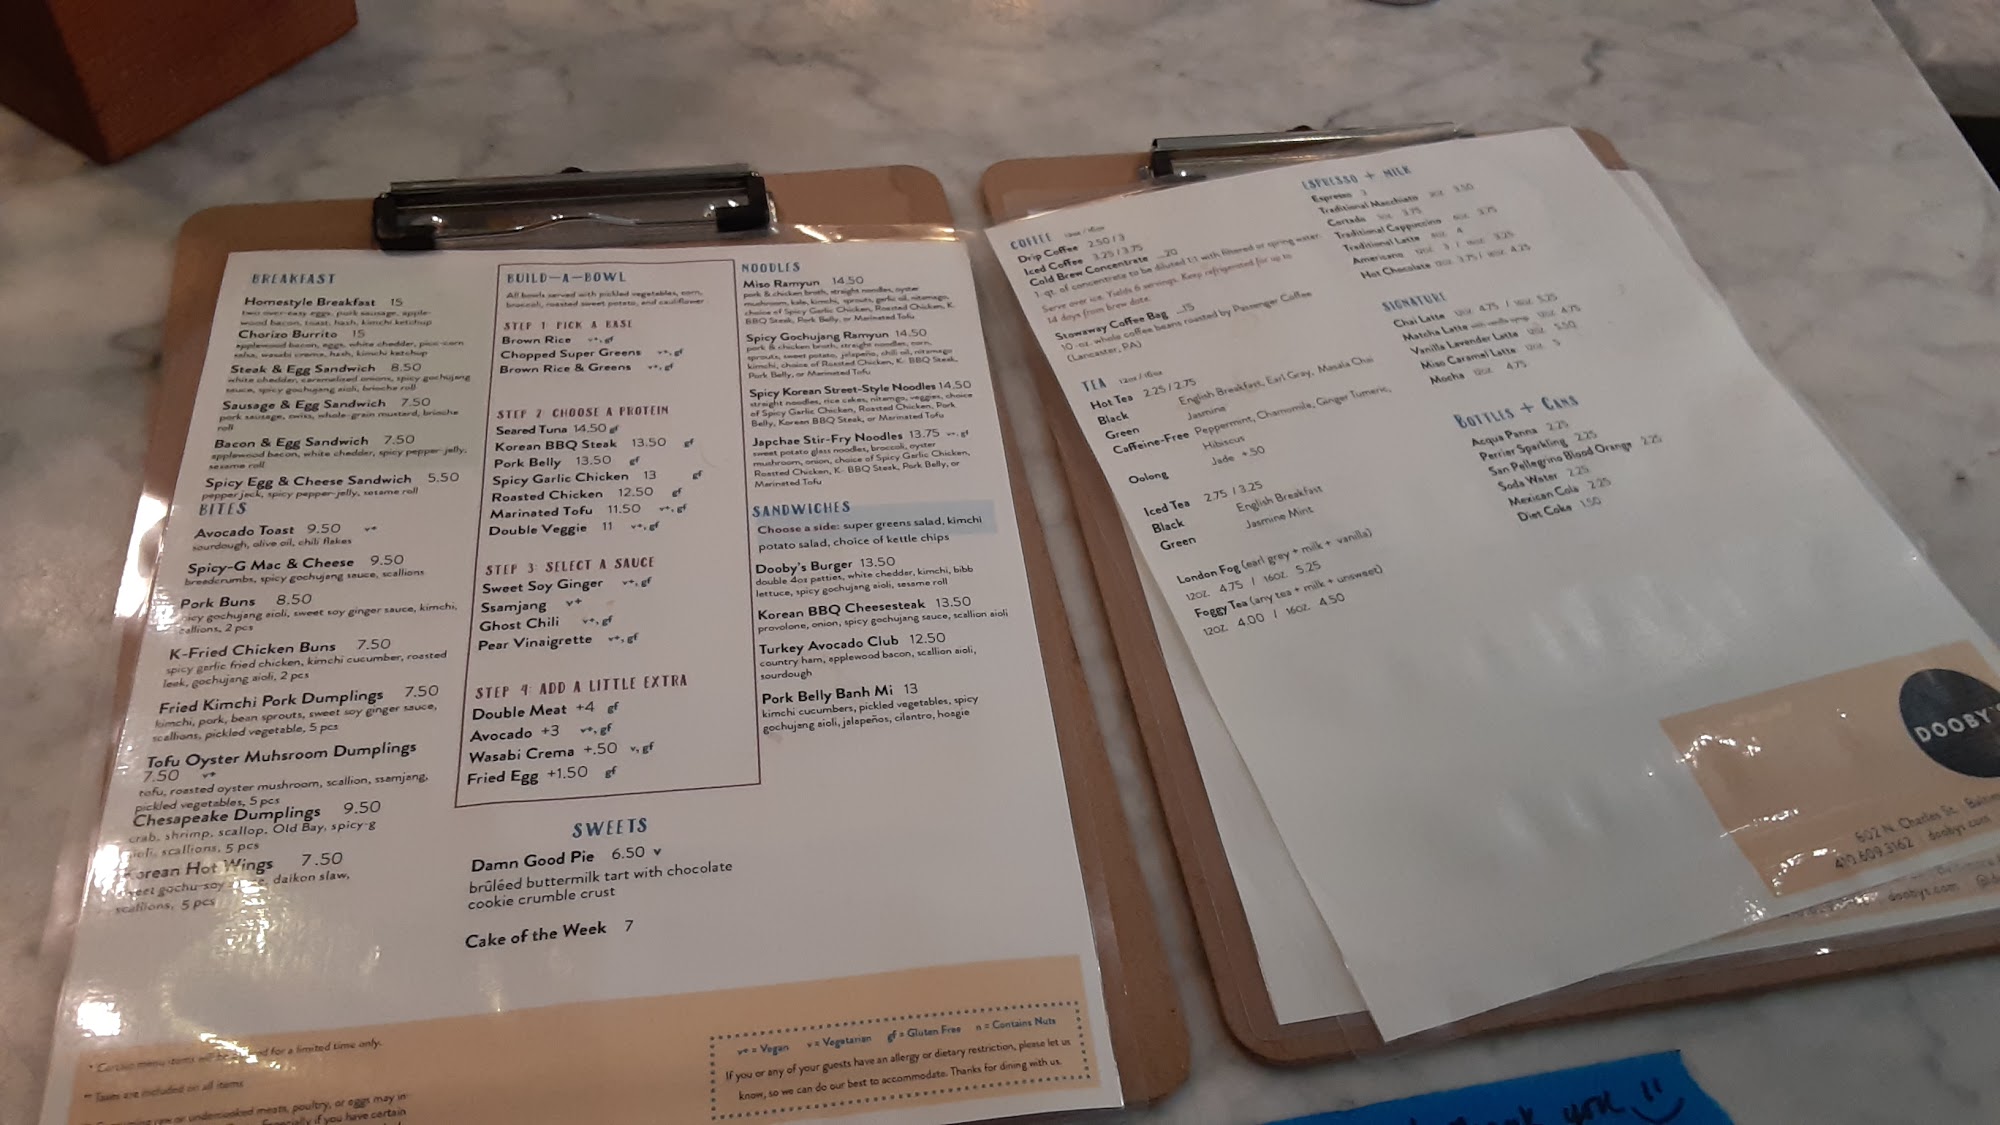 BREAKFAST
Homestyle Breakfast 15
two over-easy eggs, pork sausage, apple-
wood bacon, toast, hash, kimchi ketchup
Chorizo Burrito 15
applewood bacon, eggs, white cheddar, pico-corn
salsa, wasabi crema, hash, kimchi ketchup
Steak & Egg Sandwich 8.50
white cheddar, caramelized onions, spicy gochujang
sauce, spicy gochujang aioli, brioche roll
Sausage & Egg Sandwich 7.50
pork sausage, swiss, whole-grain mustard, brioche
roll
Bacon & Egg Sandwich 7.50
applewood bacon, white cheddar, spicy pepper-jelly,
sesame roll
Spicy Egg & Cheese Sandwich 5.50
pepper jack, spicy pepper-jelly, sesame roll
BITES
Avocado Toast 9.50 v+
sourdough, olive oil, chili flakes
Spicy-G Mac & Cheese 9.50
breadcrumbs, spicy gochujang sauce, scallions
Pork Buns 8.50
spicy gochujang aioli, sweet soy ginger sauce, kimchi,
scallions, 2 pcs
K-Fried Chicken Buns 7.50
spicy garlic fried chicken, kimchi cucumber, roasted
leek, gochujang aioli, 2 pcs
Fried Kimchi Pork Dumplings 7.50
kimchi, pork, bean sprouts, sweet soy ginger sauce,
scallions, pickled vegetable, 5 pcs
Tofu Oyster Muhsroom Dumplings
7.50 v+
tofu, roasted oyster mushroom, scallion, ssamjang,
pickled vegetables, 5 pcs
Chesapeake Dumplings 9.50
crab, shrimp, scallop, Old Bay, spicy-g
aioli, scallions, 5 pcs
Korean Hot Wings 7.50
sweet gochu-soy daikon slaw,
scallions, 5 pcs
BUILD-A-BOWL
All bowls served with pickled vegetables, corn,
broccoli, roasted sweet potato, and cauliflower
STEP 1: PICK A BASE
Brown Rice v+, gf
Chopped Super Greens v+, gf
Brown Rice & Greens v+, gf
STEP 2: CHOOSE A PROTEIN
Seared Tuna 14.50 gf
Korean BBQ Steak 13.50 gf
Pork Belly 13.50 gf
Spicy Garlic Chicken 13 gf
Roasted Chicken 12.50 gf
Marinated Tofu 11.50 v+, gf
Double Veggie 11 v+, gf
STEP 3: SELECT A SAUCE
Sweet Soy Ginger v+, gf
Ssamjang v+
Ghost Chili v+, gf
Pear Vinaigrette v+, gf
STEP 4: ADD A LITTLE EXTRA
Double Meat +4 gf
Avocado +3 v+, gf
Wasabi Crema +.50 v, gf
Fried Egg +1.50 gf
SWEETS
Damn Good Pie 6.50 v
brûléed buttermilk tart with chocolate
cookie crumble crust
Cake of the Week 7
NOODLES
Miso Ramyun 14.50
pork & chicken broth, straight noodles, oyster
mushroom, kale, kimchi, sprouts, garlic oil, nitamago,
choice of Spicy Garlic Chicken, Roasted Chicken, K-
BBQ Steak, Pork Belly, or Marinated Tofu
Spicy Gochujang Ramyun 14.50
pork & chicken broth, straight noodles, corn,
sprouts, sweet potato, jalapeño, chili oil, nitamago
kimchi, choice of Roasted Chicken, K- BBQ Steak,
Pork Belly, or Marinated Tofu
Spicy Korean Street-Style Noodles 14.50
straight noodles, rice cakes, nitamgo, veggies, choice
of Spicy Garlic Chicken, Roasted Chicken, Pork
Belly, Korean BBQ Steak, or Marinated Tofu
Japchae Stir-Fry Noodles 13.75 v+, gf
sweet potato glass noodles, broccoli, oyster
mushroom, onion, choice of Spicy Garlic Chicken,
Roasted Chicken, K- BBQ Steak, Pork Belly, or
Marinated Tofu
SANDWICHES
Choose a side: super greens salad, kimchi
potato salad, choice of kettle chips
Dooby's Burger 13.50
double 4oz patties, white cheddar, kimchi, bibb
lettuce, spicy gochujang aioli, sesame roll
Korean BBQ Cheesesteak 13.50
provolone, onion, spicy gochujang sauce, scallion aioli
Turkey Avocado Club 12.50
country ham, applewood bacon, scallion aioli,
sourdough
Pork Belly Banh Mi 13
kimchi cucumbers, pickled vegetables, spicy
gochujang aioli, jalapeños, cilantro, hoagie
* Certain menu items will be for a limited time only.
** Taxes are included on all items
raw or undercooked meats, poultry, or eggs may in
Especially if you have certain
v+ = Vegan v = Vegetarian gf = Gluten Free n = Contains Nuts
If you or any of your guests have an allergy or dietary restriction, please let us
know, so we can do our best to accommodate. Thanks for dining with us.
COFFEE 12oz / 16oz
Drip Coffee 2.50 / 3
Iced Coffee 3.25 / 3.75
Cold Brew Concentrate ...20
1-qt. of concentrate to be diluted 1:1 with filtered or spring water.
Serve over ice. Yields 6 servings. Keep refrigerated for up to
14 days from brew date.
Stowaway Coffee Bag ...15
10-oz. whole coffee beans roasted by Passenger Coffee
(Lancaster, PA)
TEA 12oz / 16oz
Hot Tea 2.25 / 2.75
Black English Breakfast, Earl Gray, Masala Chai
Green Jasmine
Caffeine-Free Peppermint, Chamomile, Ginger Tumeric,
Hibiscus
Oolong Jade +.50
Iced Tea 2.75 / 3.25
Black English Breakfast
Green Jasmine Mint
London Fog (earl grey + milk + vanilla)
12OZ. 4.75 / 16OZ. 5.25
Foggy Tea (any tea + milk + unsweet)
12OZ. 4.00 / 16OZ. 4.50
ESPRESSO + MILK
Espresso 3
Traditional Macchiato 2OZ. 3.50
Cortado 3.75
Traditional Cappuccino 6OZ. 3.75
Traditional Latte 4
Americano 12OZ. 3 / 16OZ. 3.25
Hot Chocolate 12OZ. 3.75 / 16OZ. 4.25
SIGNATURE
Chai Latte 12OZ. 4.75 / 16OZ. 5.25
Matcha Latte with vanilla syrup 12OZ. 4.75
Vanilla Lavender Latte 12OZ. 5.50
Miso Caramel Latte 12OZ. 5
Mocha 12OZ. 4.75
BOTTLES + CANS
Acqua Panna 2.25
Perrier Sparkling 2.25
San Pellegrino Blood Orange 2.25
Soda Water 2.25
Mexican Cola 2.25
Diet Coke 1.50
DOOBY'S
802 N. Charles St.
410.609.3162 | doobys.com
doobys.com
you